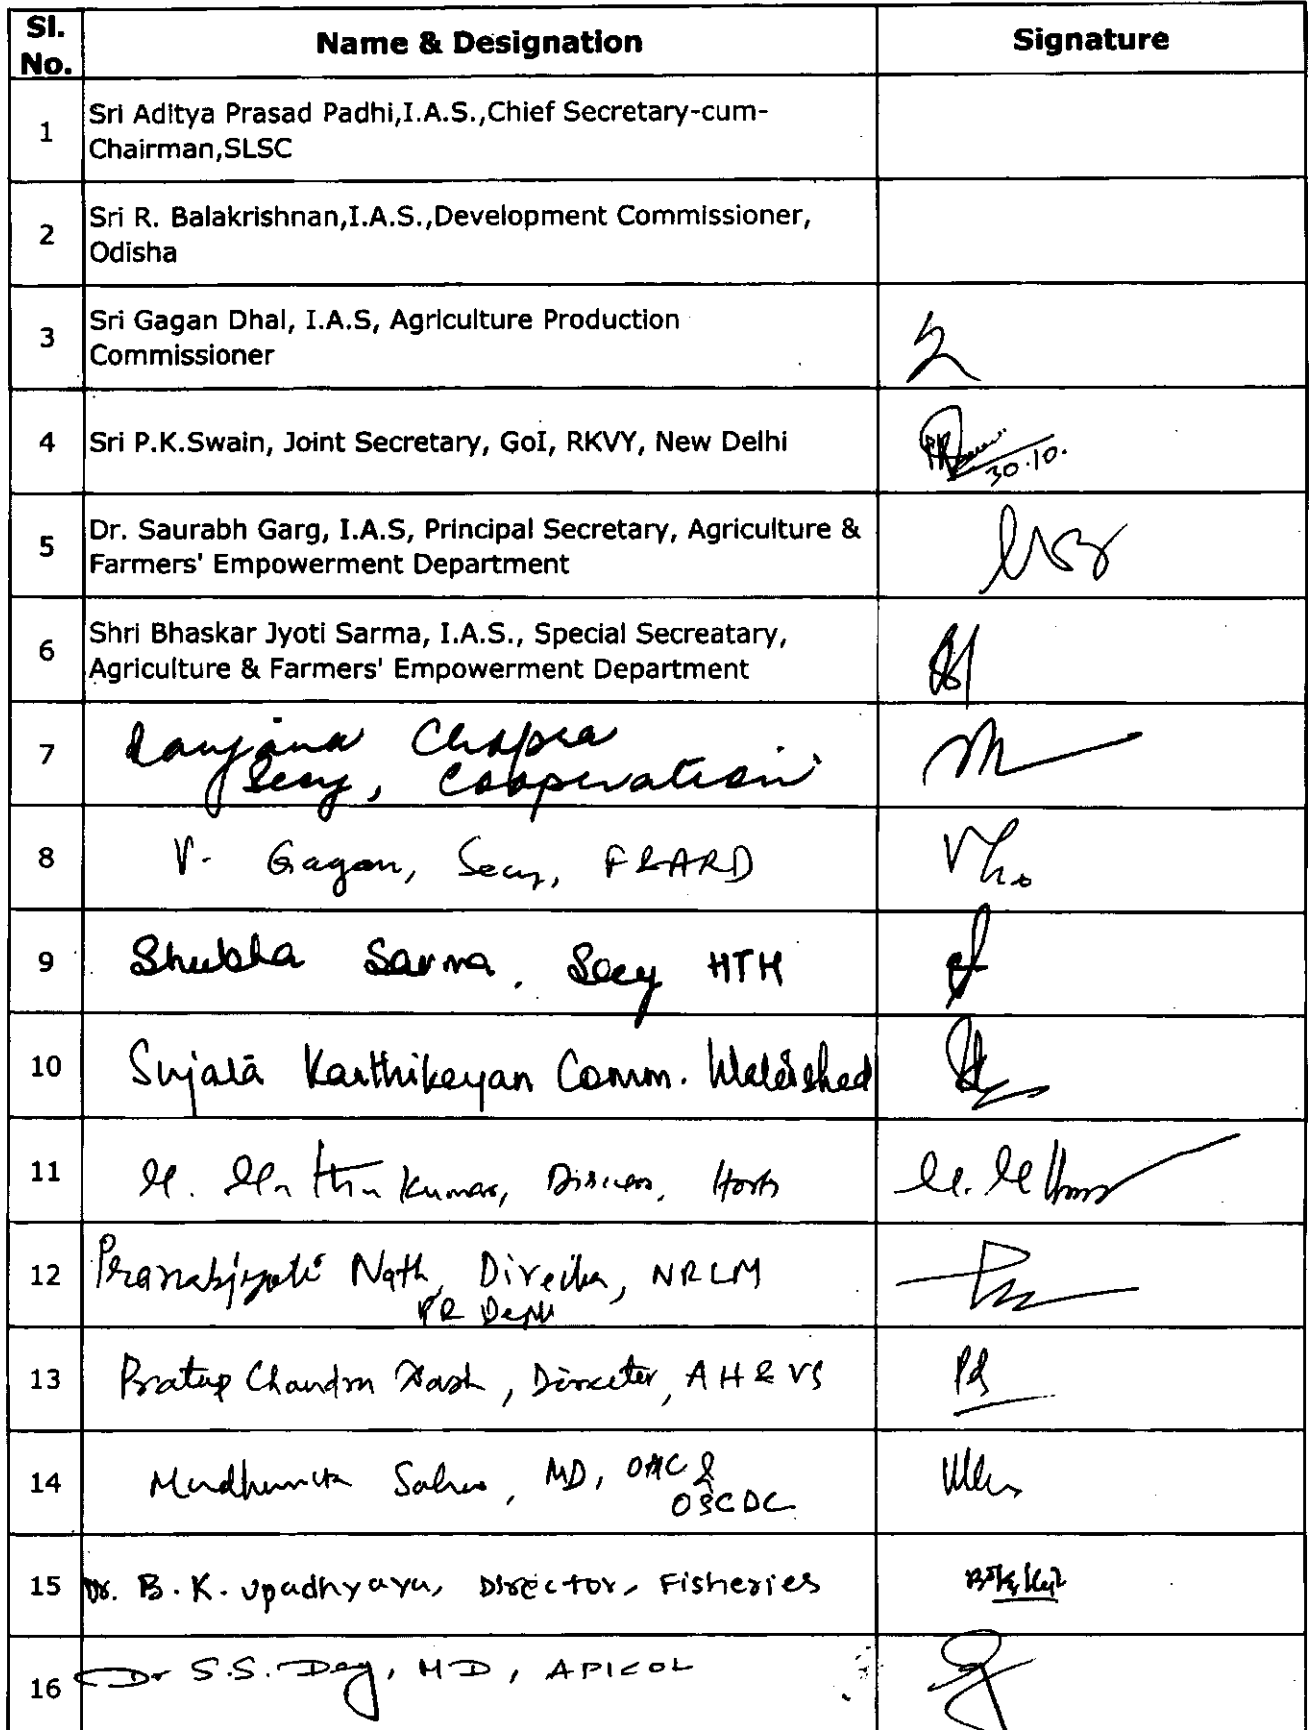 Sl. No. Name & Designation Signature
1 Sri Aditya Prasad Padhi,I.A.S.,Chief Secretary-cum-
Chairman,SLSC
2 Sri R. Balakrishnan,I.A.S.,Development Commissioner,
Odisha
3 Sri Gagan Dhal, I.A.S, Agriculture Production
Commissioner
4 Sri P.K.Swain, Joint Secretary, GoI, RKVY, New Delhi
30.10.
5 Dr. Saurabh Garg, I.A.S, Principal Secretary, Agriculture &
Farmers' Empowerment Department
6 Shri Bhaskar Jyoti Sarma, I.A.S., Special Secreatary,
Agriculture & Farmers' Empowerment Department
7 Ranjana Chopra
Secy, Cooperation
8 V. Gagan, Secy, F&ARD
9 Shubha Sarma. Secy HTH
10 Sujata Karthikeyan Comm. Watershed
11 Kumar,
12 Pranabjyoti Nath, Director, NRLM
PR Deptt
13 Pratap Chandra Dash, Director, AH & VS
14 Madhumita Sahoo, MD,
15 Dr. B.K. Upadhyaya, Director, Fisheries
16 Dr S.S. Dey, MD, APICOL